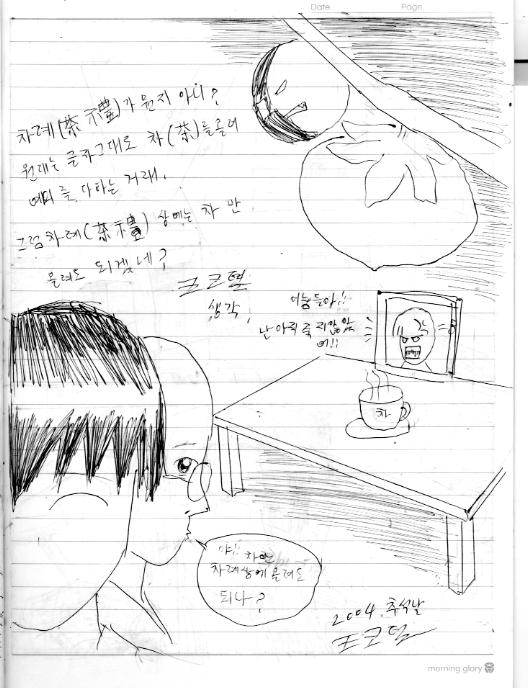 Date
Page
차례(茶禮)가 뭔지 아니?
원래는 글자그대로 차(茶)를 올려
예의를 다하는 거래.
그럼 차례(茶禮) 상에는 차 만
올려도 되겠네?
생각,
이놈들아!!
난 아직 죽지 않았
어!!
차
야!! 차만
차례상에 올려도
되나?
2004. 추석날
morning glory